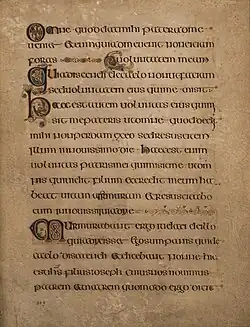 Omne quod dat mihi pater ad me
ueniet et eum qui ad me uenit non eiciam
foras uoluntatem meam
Quia discendi de caelo non ut faciam
sed uoluntatem eius qui me misit
Haec est autem uoluntas eius qui mis
sit me patris ut omne quod dedit
mihi non perdam ex eo sed resuscitem
illum in nouissimo die Haec est enim
uoluntas patris mei qui misit me ut om
nis qui uidit filium et credit in eum ha
beat uitam aeternam et resuscitabo
eum in nouissimo die
Murmurabant ergo iudaei de illo
quia dixisset ego sum panis qui de
caelo discendi et dicebant nonne hic
est ihs filius ioseph cuius nos nouimus
patrem et matrem quomodo ergo dicit